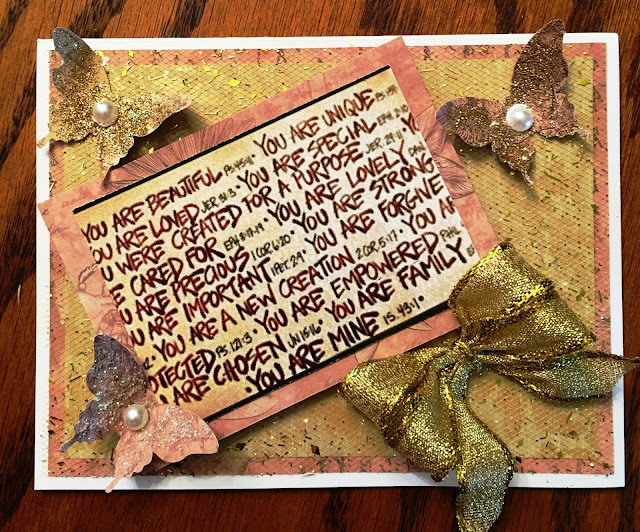 YOU ARE BEAUTIFUL PS 45:11 · YOU ARE UNIQUE PS 139
YOU ARE LOVED JER 31:3 · YOU ARE SPECIAL EPH 2:10
U WERE CREATED FOR A PURPOSE JER 29:11 · Y
E CARED FOR EPH 3:17-19 · YOU ARE LOVELY DAN
U ARE PRECIOUS 1 COR 6:20 · YOU ARE STRONG
U ARE IMPORTANT 1 PET 2:9 · YOU ARE FORGIVE
· YOU ARE A NEW CREATION 2 COR 5:17 · YOU A
OTECTED PS 121:3 · YOU ARE EMPOWERED PHIL
U ARE CHOSEN JN 15:16 · YOU ARE FAMILY
· YOU ARE MINE IS 43:1 ·